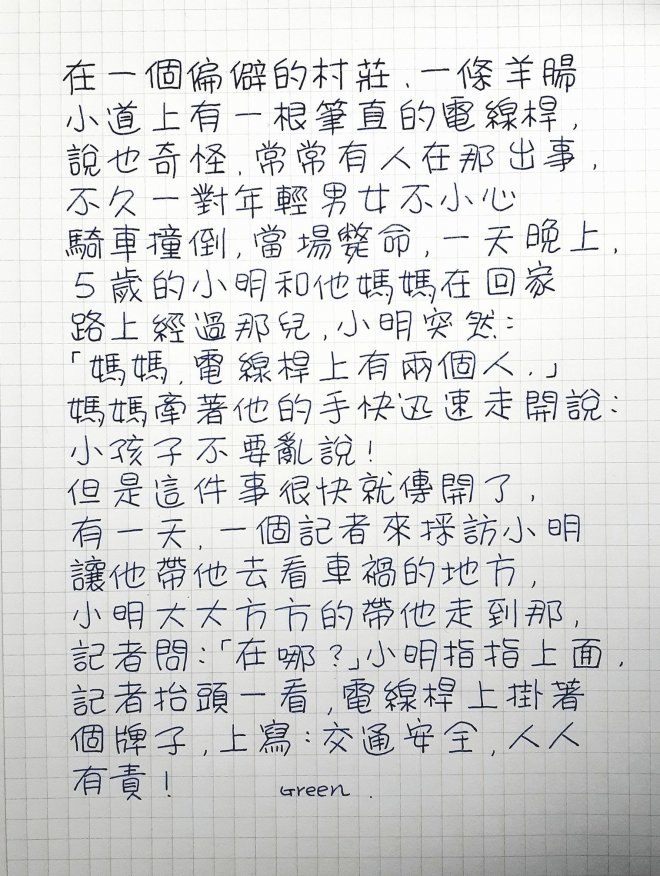 在一個偏僻的村莊,一條羊腸
小道上有一根筆直的電線桿,
說也奇怪,常常有人在那出事,
不久一對年輕男女不小心
騎車撞倒,當場斃命,一天晚上,
5歲的小明和他媽媽在回家
路上經過那兒,小明突然:
「媽媽,電線桿上有兩個人.」
媽媽牽著他的手快迅速走開說:
小孩子不要亂說!
但是這件事很快就傳開了,
有一天,一個記者來採訪小明
讓他帶他去看車禍的地方,
小明大大方方的帶他走到那,
記者問:「在哪?」小明指指上面,
記者抬頭一看,電線桿上掛著
個牌子,上寫:交通安全,人人
有責! Green.